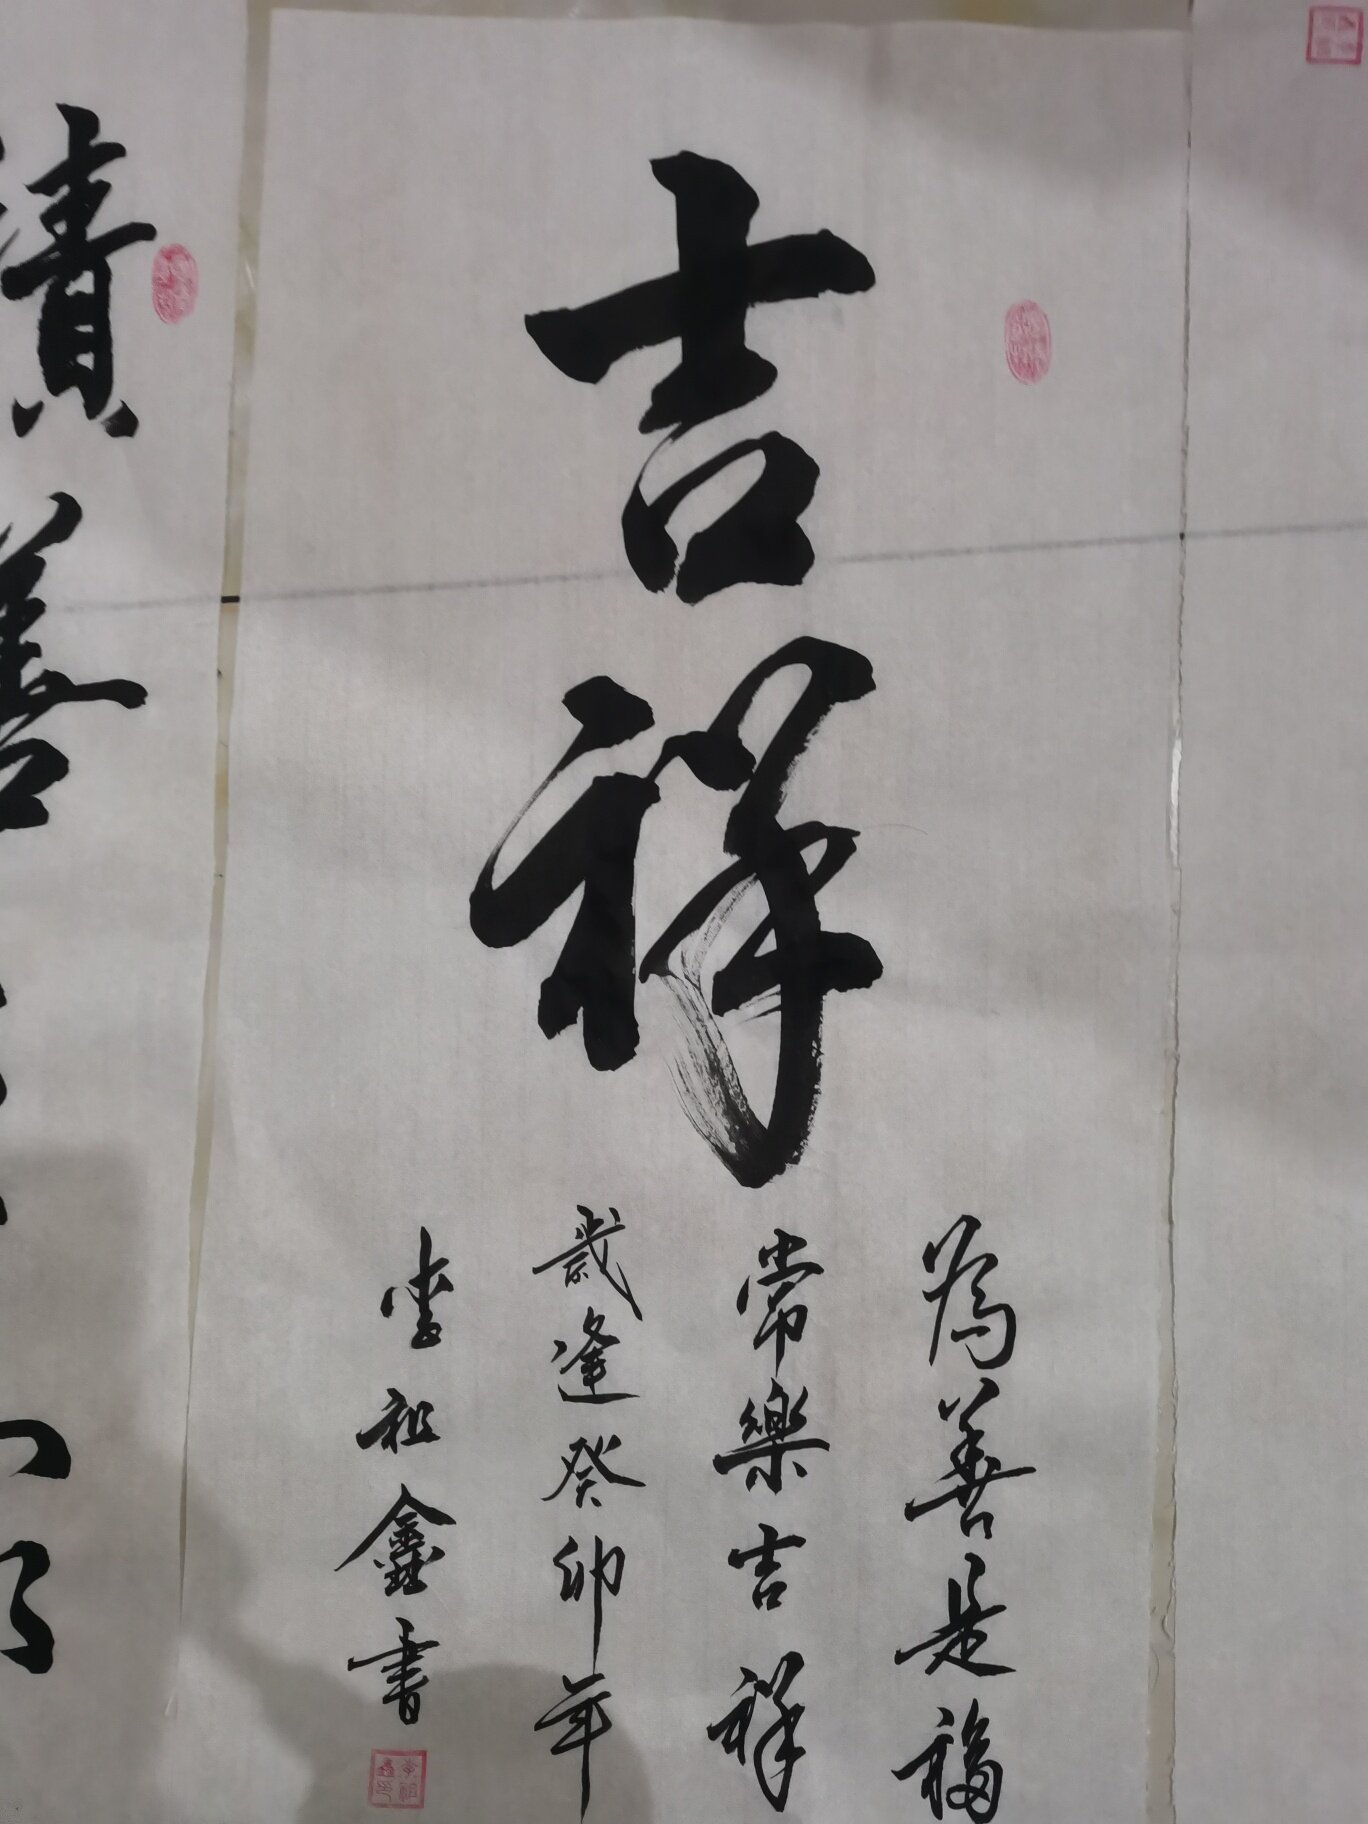 吉祥
為善是福
常樂吉祥
歲逢癸卯年
李祖鑫書
積善